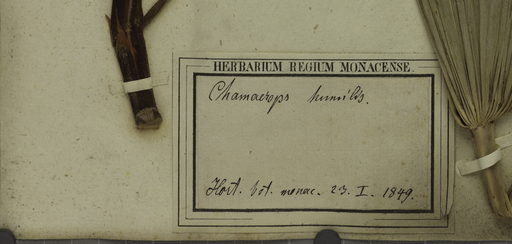 HERBARIUM REGIUM MONACENSE.
Chamaerops humilis.
Hort. bot. monac. 23. I. 1849.